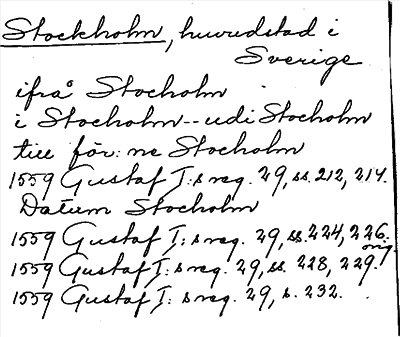 Stockholm, huvudstad i
Sverige
ifrå Stocholm
i Stocholm -- udi Stocholm
till för: ne Stocholm
1559 Gustaf I: s reg. 29, ss. 212, 214.
Datum Stocholm
1559 Gustaf I: s reg. 29, ss. 224, 226.
orig.
1559 Gustaf I: s reg. 29, ss. 228, 229.
1559 Gustaf I: s reg. 29, s. 232.